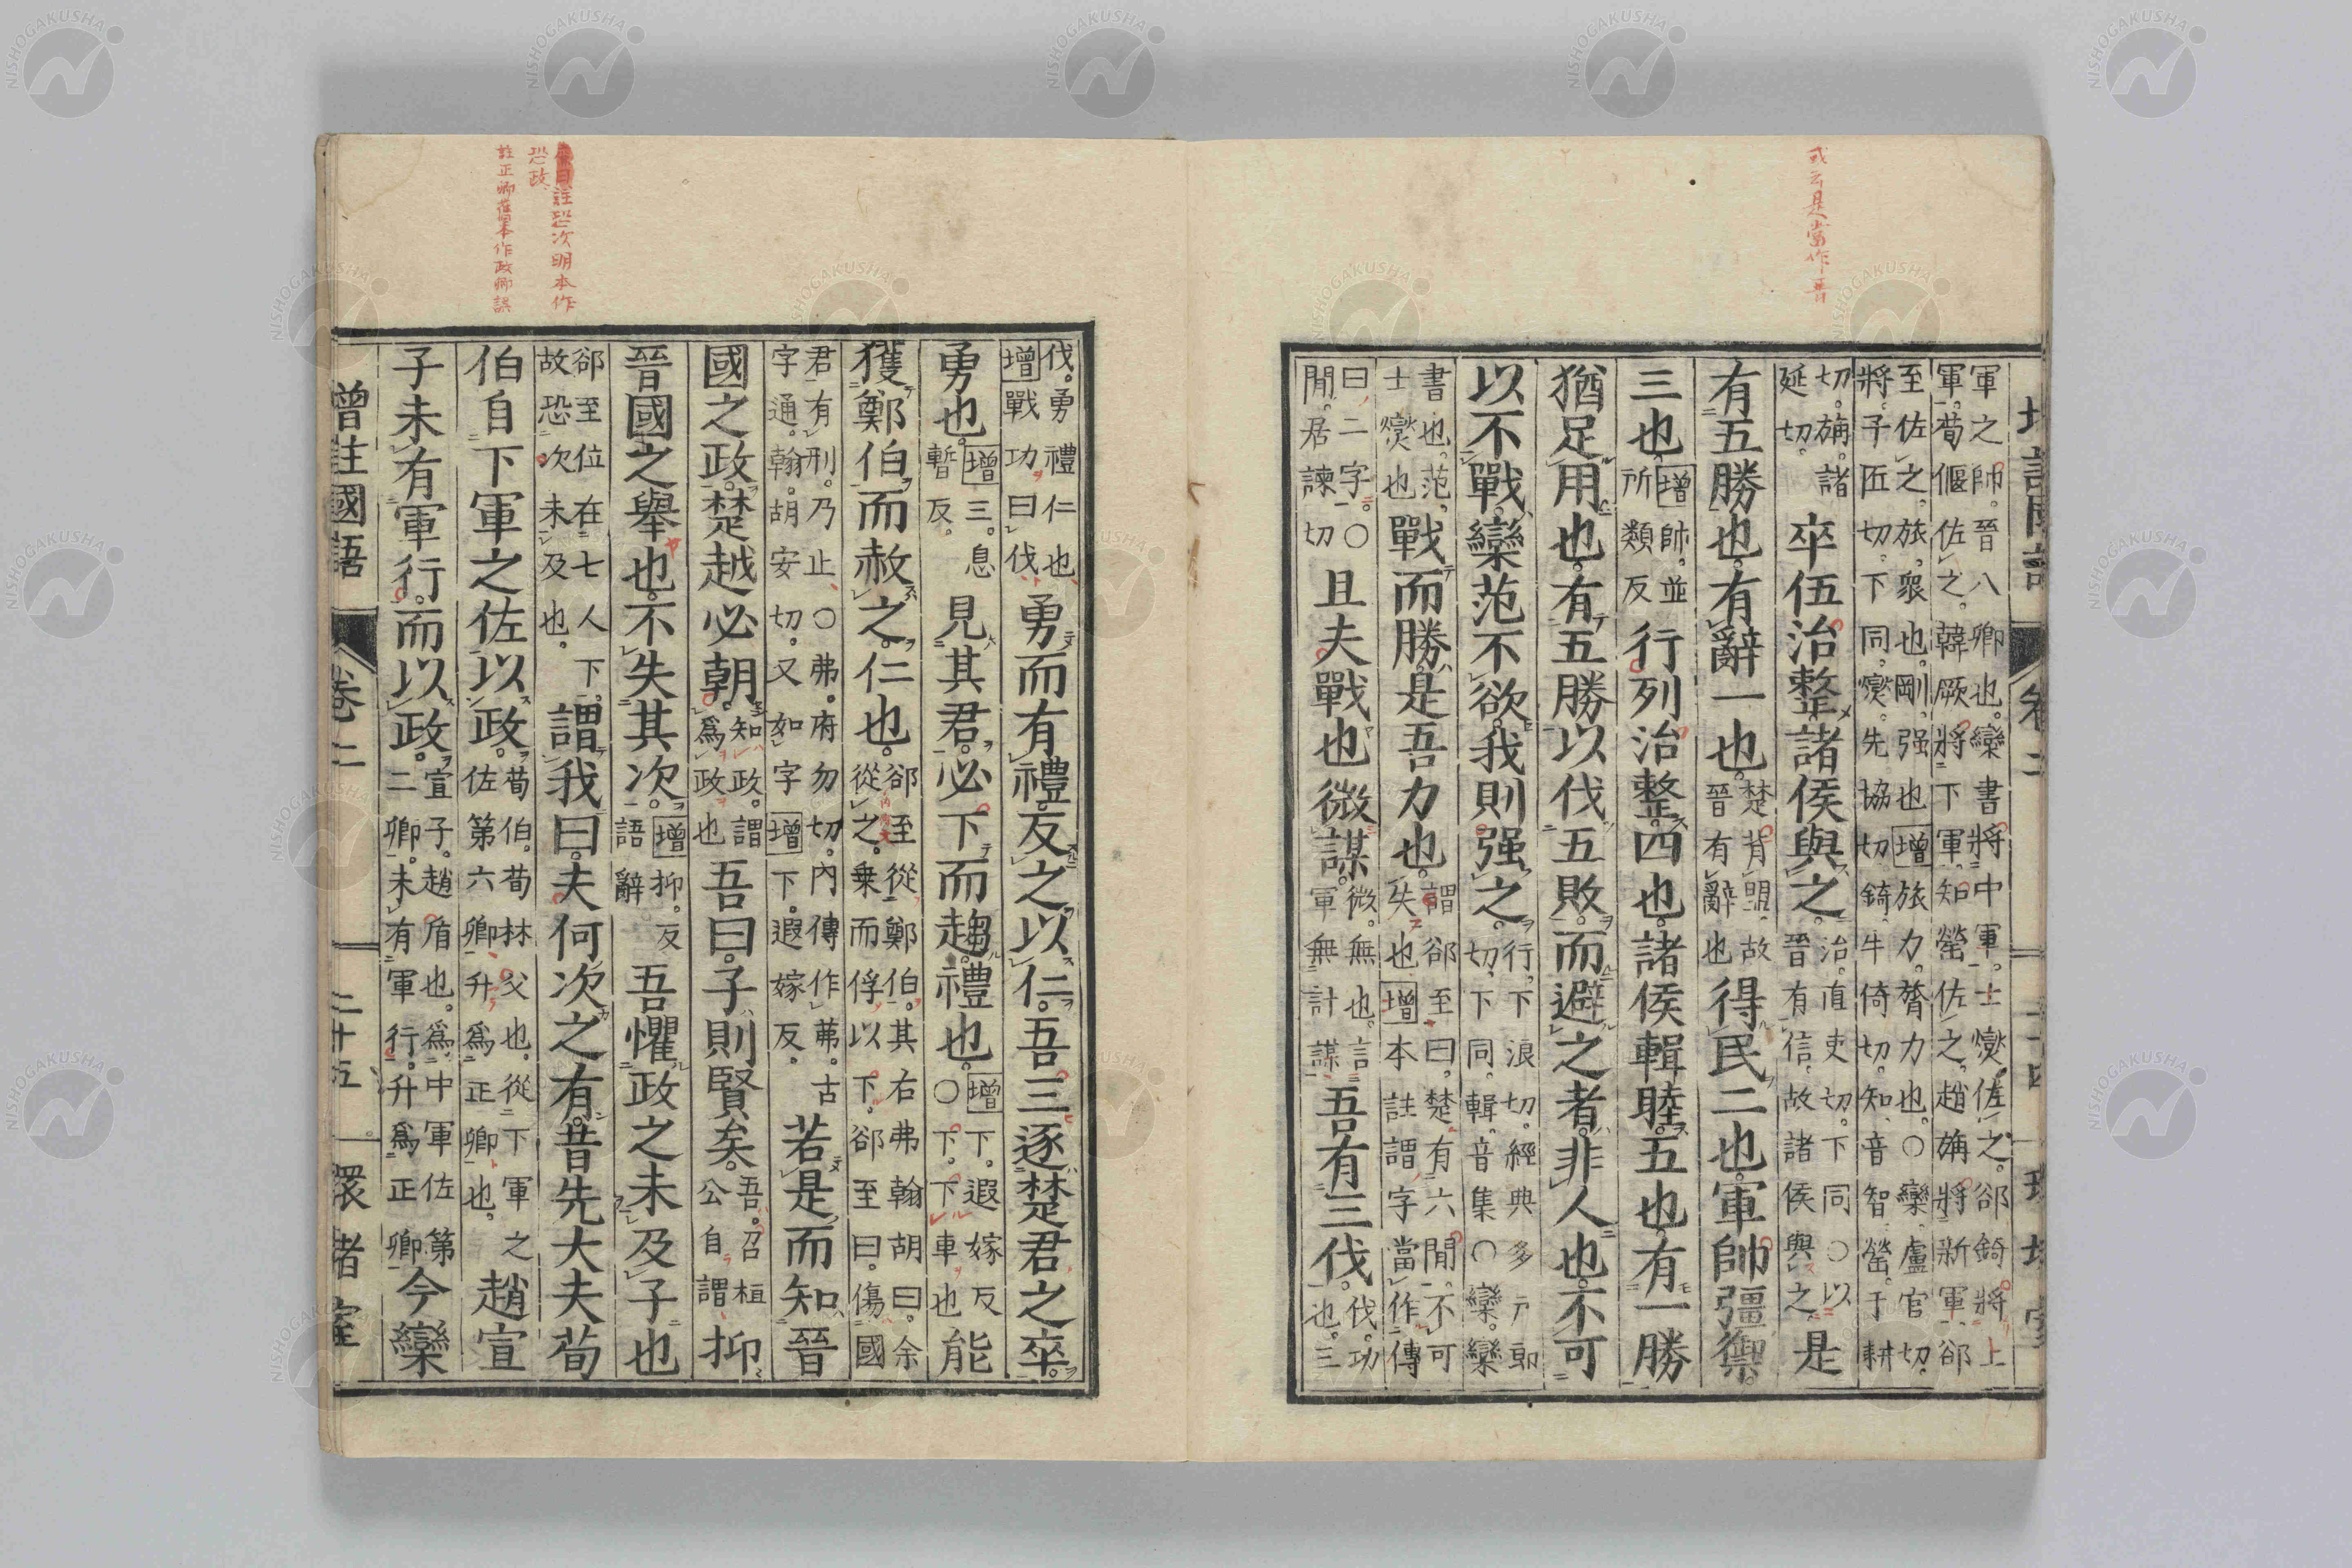 或云是當作晋
軍之帥晉八卿也欒書將中軍士燮佐之郤錡將上
軍荀偃佐之韓厥將下軍知罃佐之趙旃將新軍郤
至佐之旅衆也剛强也增旅力膂力也〇欒盧官切
將子匠切下同燮先協切錡牛倚切知音智罃于耕
切旃諸延切卒伍治整諸侯與之治直吏切下同〇以晉有信故諸侯與之是
有五勝也有辭一也楚背盟故晉有辭也得民二也軍帥彊禦
三也增帥並所類反行列治整四也諸侯輯睦五也有一勝
猶足用也有五勝以伐五敗而避之者非人也不可
以不戰欒范不欲我則强之行下浪切經典多戸郎切下同輯音集〇欒欒
書也范士燮也戰而勝是吾力也謂郤至曰楚有六閒不可失也增本註謂字當作傳
曰二字〇閒居諫切且夫戰也微謀微無也言軍無計謀吾有三伐伐功也三
伐勇禮仁也增戰功曰伐勇而有禮反之以仁吾三逐楚君之卒
勇也增三息暫反見其君必下而趨禮也增下遐嫁反〇下下車也能
獲鄭伯而赦之仁也郤至從鄭伯其右茀翰胡曰余從之乗而俘以下郤至曰傷國
君有刑乃止〇弗府勿切內傳作茀古字通翰胡安切又如字增下遐嫁反若是而知晉
國之政楚越必朝知政謂爲政也吾曰子則賢矣吾召桓公自謂抑
晉國之舉也不失其次增抑反語辭吾懼政之未及子也
郤至位在七人下故恐次未及也謂我曰夫何次之有昔先大夫荀
伯自下軍之佐以政荀伯荀林父也從下軍之佐第六卿升爲正卿也趙宣
子未有軍行而以政宣子趙盾也爲中軍佐第二卿未有軍行升爲正卿今欒
增註國語 卷二 二十五
註恐次明本作
恐政
註正卿舊本作政卿誤